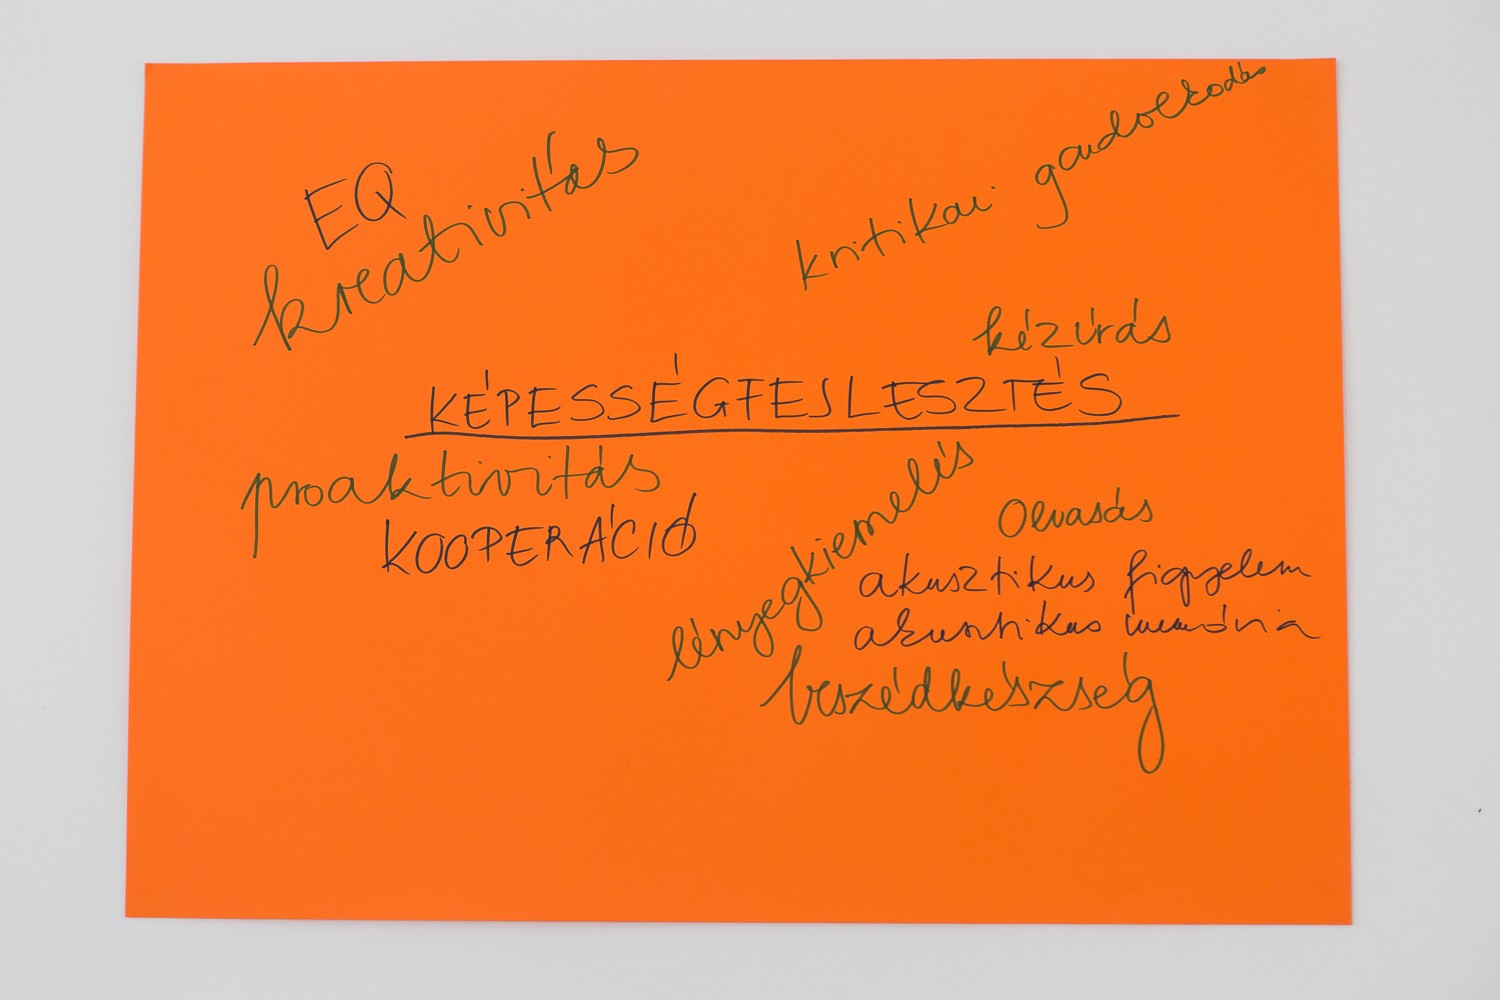 EQ
kreativitás
kritikai gondolkodás
kézírás
KÉPESSÉGFEJLESZTÉS
proaktivitás
KOOPERÁCIÓ
lényegkiemelés
Olvasás
akusztikus figyelem
akusztikus memória
beszédkészség